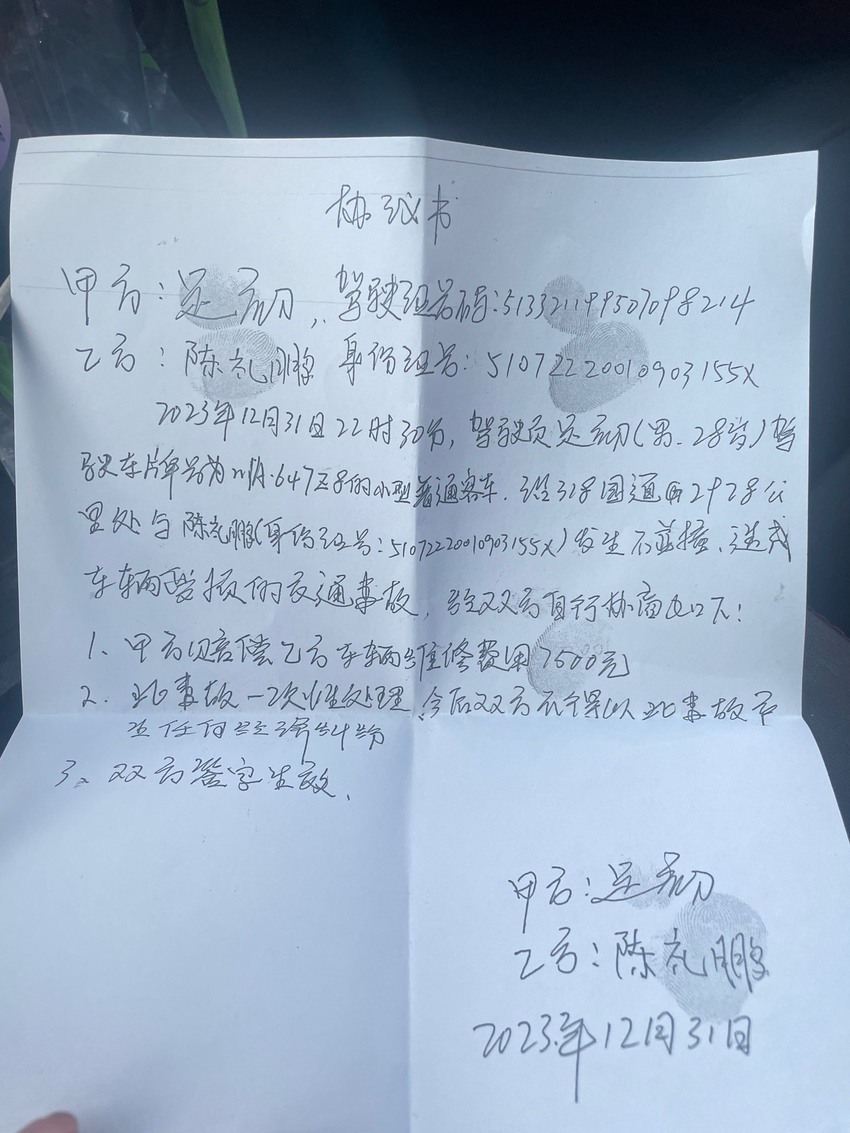 协议书
甲方：足初，驾驶证号码：513321199507098214
乙方：陈礼鹏 身份证号：51072220010903155X
2023年12月31日22时30分，驾驶员足初（男、28岁）驾
驶车牌号为 A·647Z8的小型普通客车，途318国道 2928公
里处与陈礼鹏（身份证号：51072220010903155X）发生 碰撞，造成
车辆受损的交通事故，经双方自行协商 如下：
1、甲方赔偿乙方车辆维修费用7500元
2、此事故一次性处理，今后双方不得以此事故产
生任何经济纠纷
3、双方签字生效、
甲方：足初
乙方：陈礼鹏
2023年12月31日